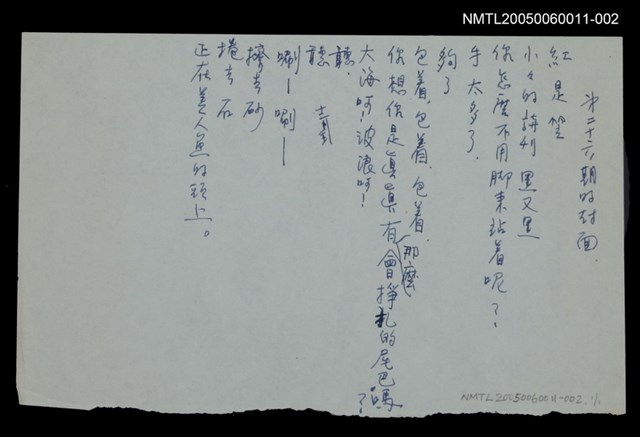 NMTL20050060011-002
第二十六期的封面.
紅是堃
小小的精刊 黑又黑
你怎麼不用脚来站着呢?
手太多了.
夠了
包着.包着.包着.
你想你是真真有那麼會掙扎的尾巴嗎?
大海呵!波浪呵!
聽.
聽
唰—唰—
擠去砂
捲去石
正在美人魚的頭上。
NMTL20050060011-002. 1/1